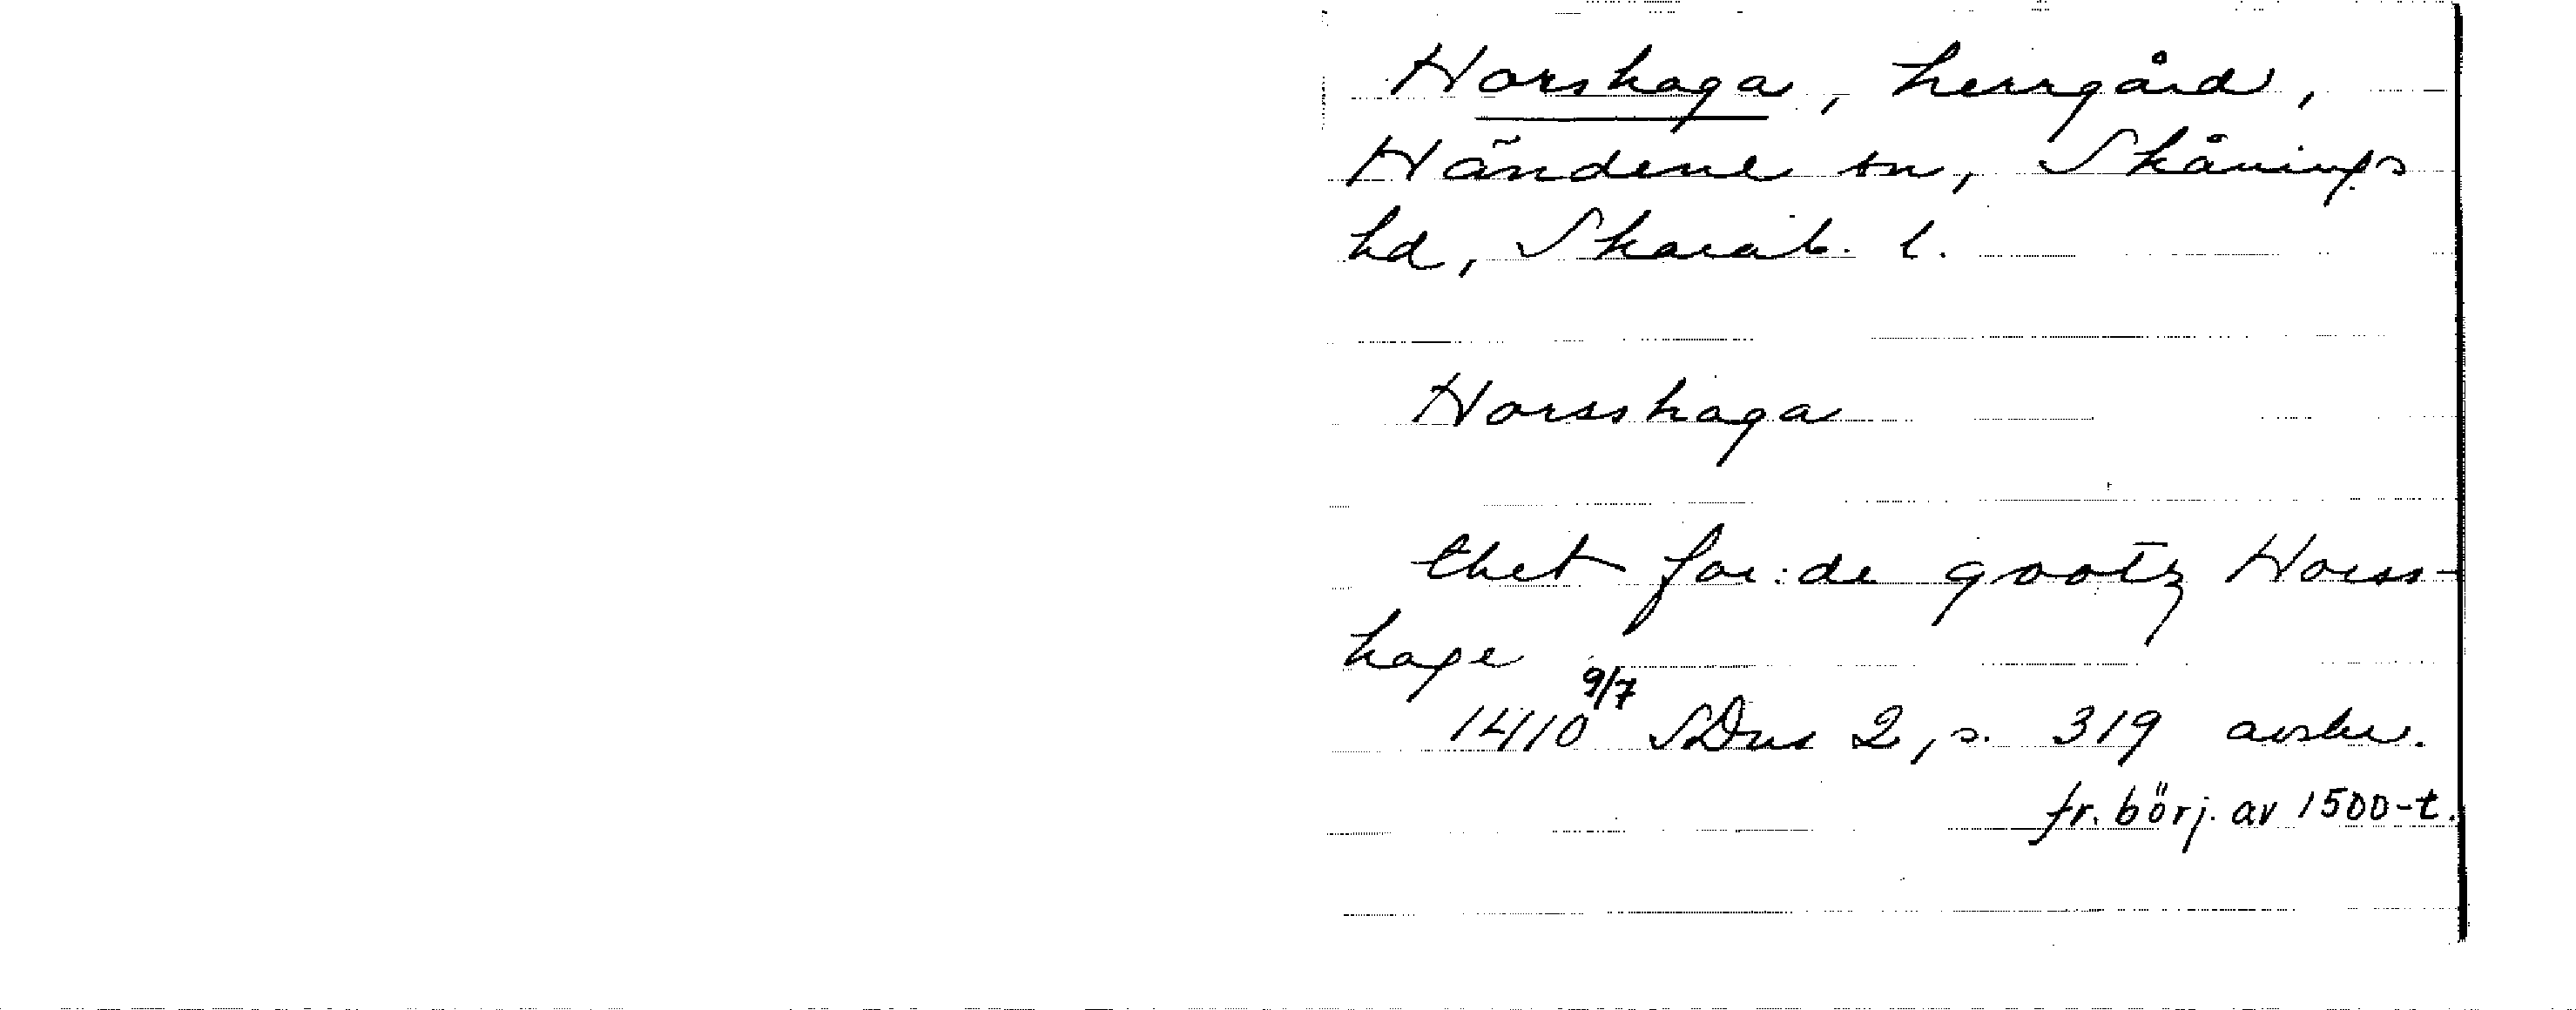 Horshaga, herrgård,
Händene sn, Skånings
hd, Skarab. l.
Horsshaga
thet for:de gootz Horss-
hage
1410 9/7 SDns 2, s. 319 avskr.
fr. börj. av 1500-t.